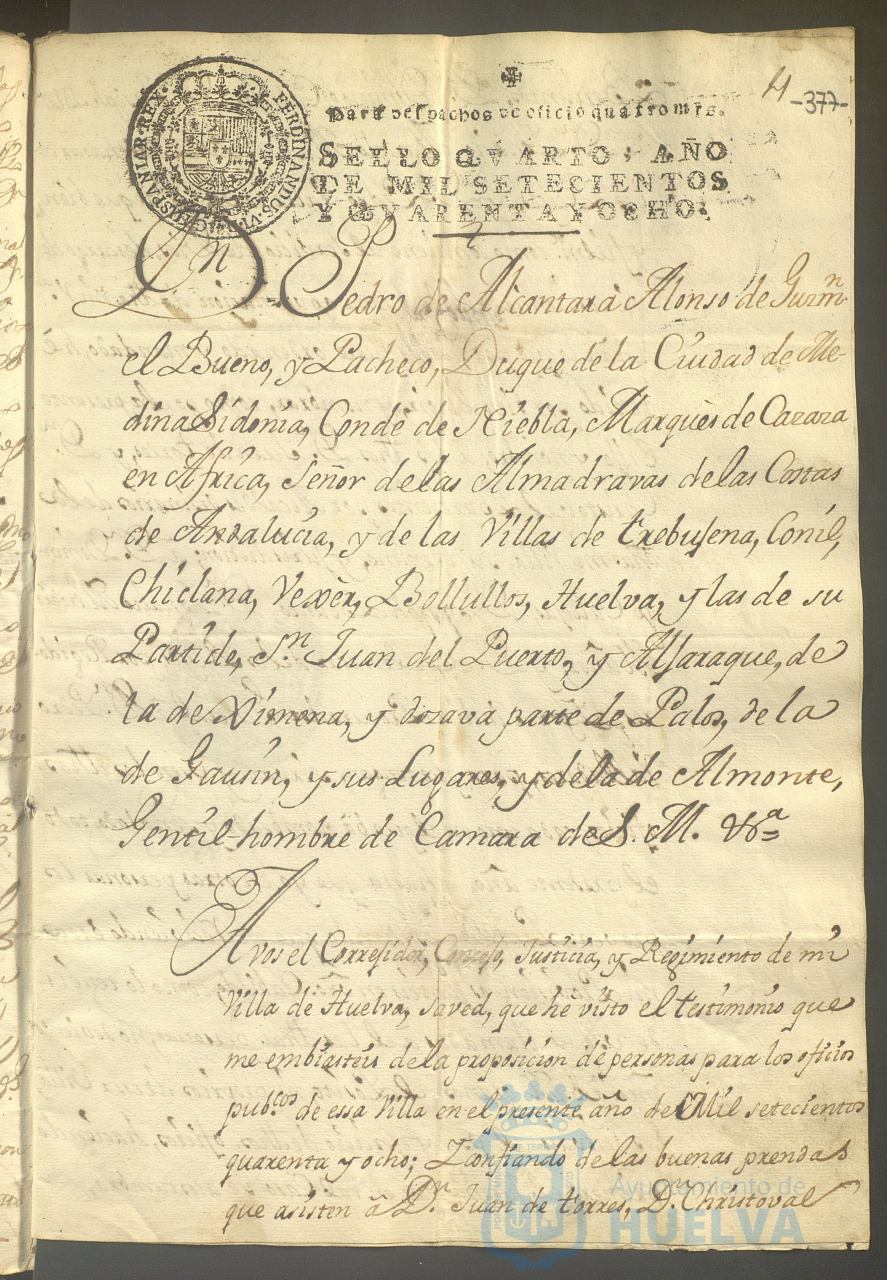 FERDINANDUS VI HISPANIAR REX
Para despachos de oficio quatro mrs.
SELLO QVARTO, AÑO
DE MIL SETECIENTOS
Y QVARENTA Y OCHO.
-377-
Dn Pedro de Alcantara Alonso de Guzmn
el Bueno, y Pacheco, Duque de la Ciudad de Me-
dina Sidonia, Conde de Niebla, Marquès de Cazaza
en Africa, Señor de las Almadravas de las Costas
de Andalucia, y de las Villas de trebujena, Conil,
Chiclana, Vexèr, Bollullos, Huelva, y las de su
Partido, Sn Juan del Puerto, y Aljaraque, de
la de Ximena, y dozava parte de Palos, de la
de Gausin, y sus Lugares, y de la de Almonte,
Gentil-hombre de Camara de S. M. &a
A vos el Corregidor, Concejo, Justicia, y Regimiento de mi
Villa de Huelva, saved, que hè visto el testimonio que
me embiasteis de la proposicion de personas para los oficios
pubcos de essa Villa en el presente año de Mil setecientos
quarenta y ocho; Y confiando de las buenas prendas
que asisten â Dn Juan de torres, Dn Christoval
Ayuntamiento de
HUELVA